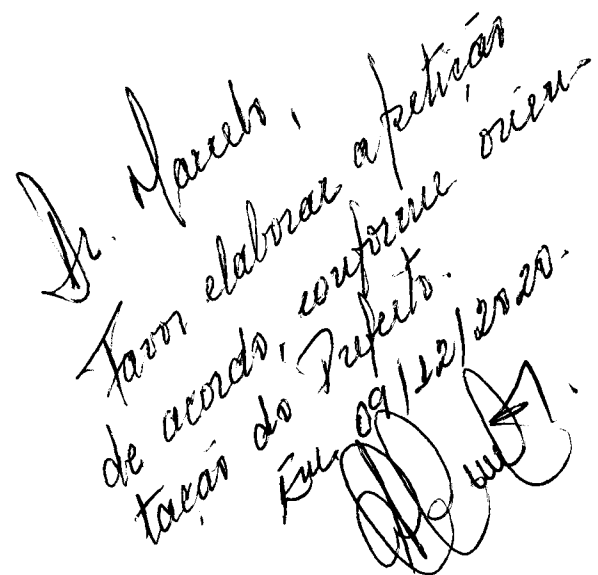 Dr. Marcelo,
Favor elaborar a petição
de acordo, conforme orien-
tação do Prefeito.
Em, 09/12/2020.